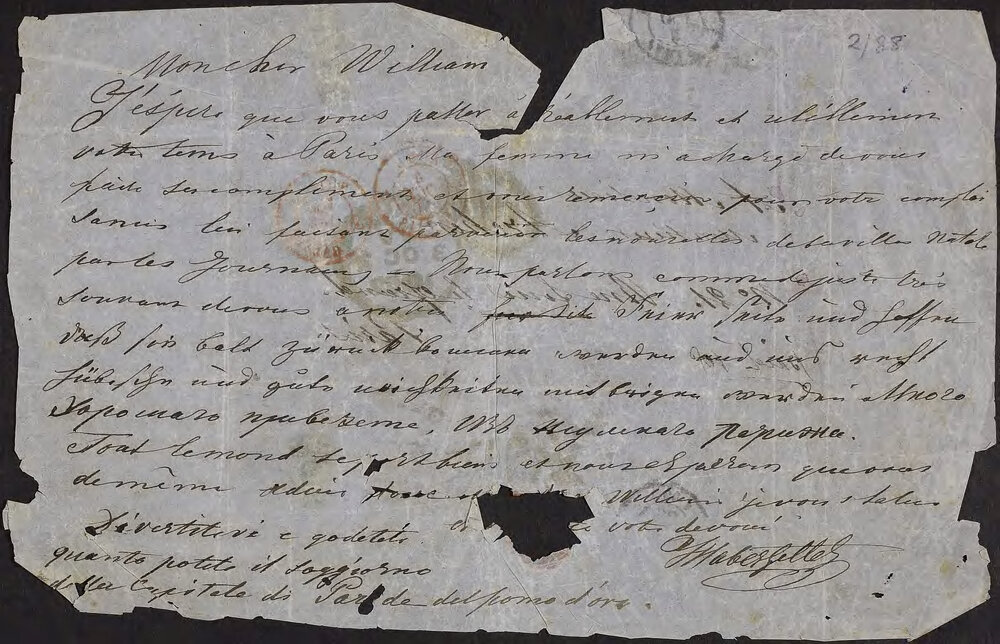 2/88
Mon cher William
J'éspère que vous passer agréablement et utillement
votre tems à Paris Ma femme m'a chargé de vous
faire ses compliments et vous remercier pour votre complai
sance lui faisant parvenir les nouvelles de la ville Natale
par les Journeaux — Nous parlons comme de juste très
souvant de vous a notre und hoffen
daß sie balt zurück kommen werden und uns recht
hübsche und gute neuigkeiten mitbringen werden Много
Хорошаго привезете, изъ шумнаго Парижа.
Tout le mond se port bien et nous esperons que vous
de même adieu William je vous salue
votre devoué
Divertitevi e godete
quanto potete il soggiorno
della Capitale di del pomo d'oro.
Haberzettel